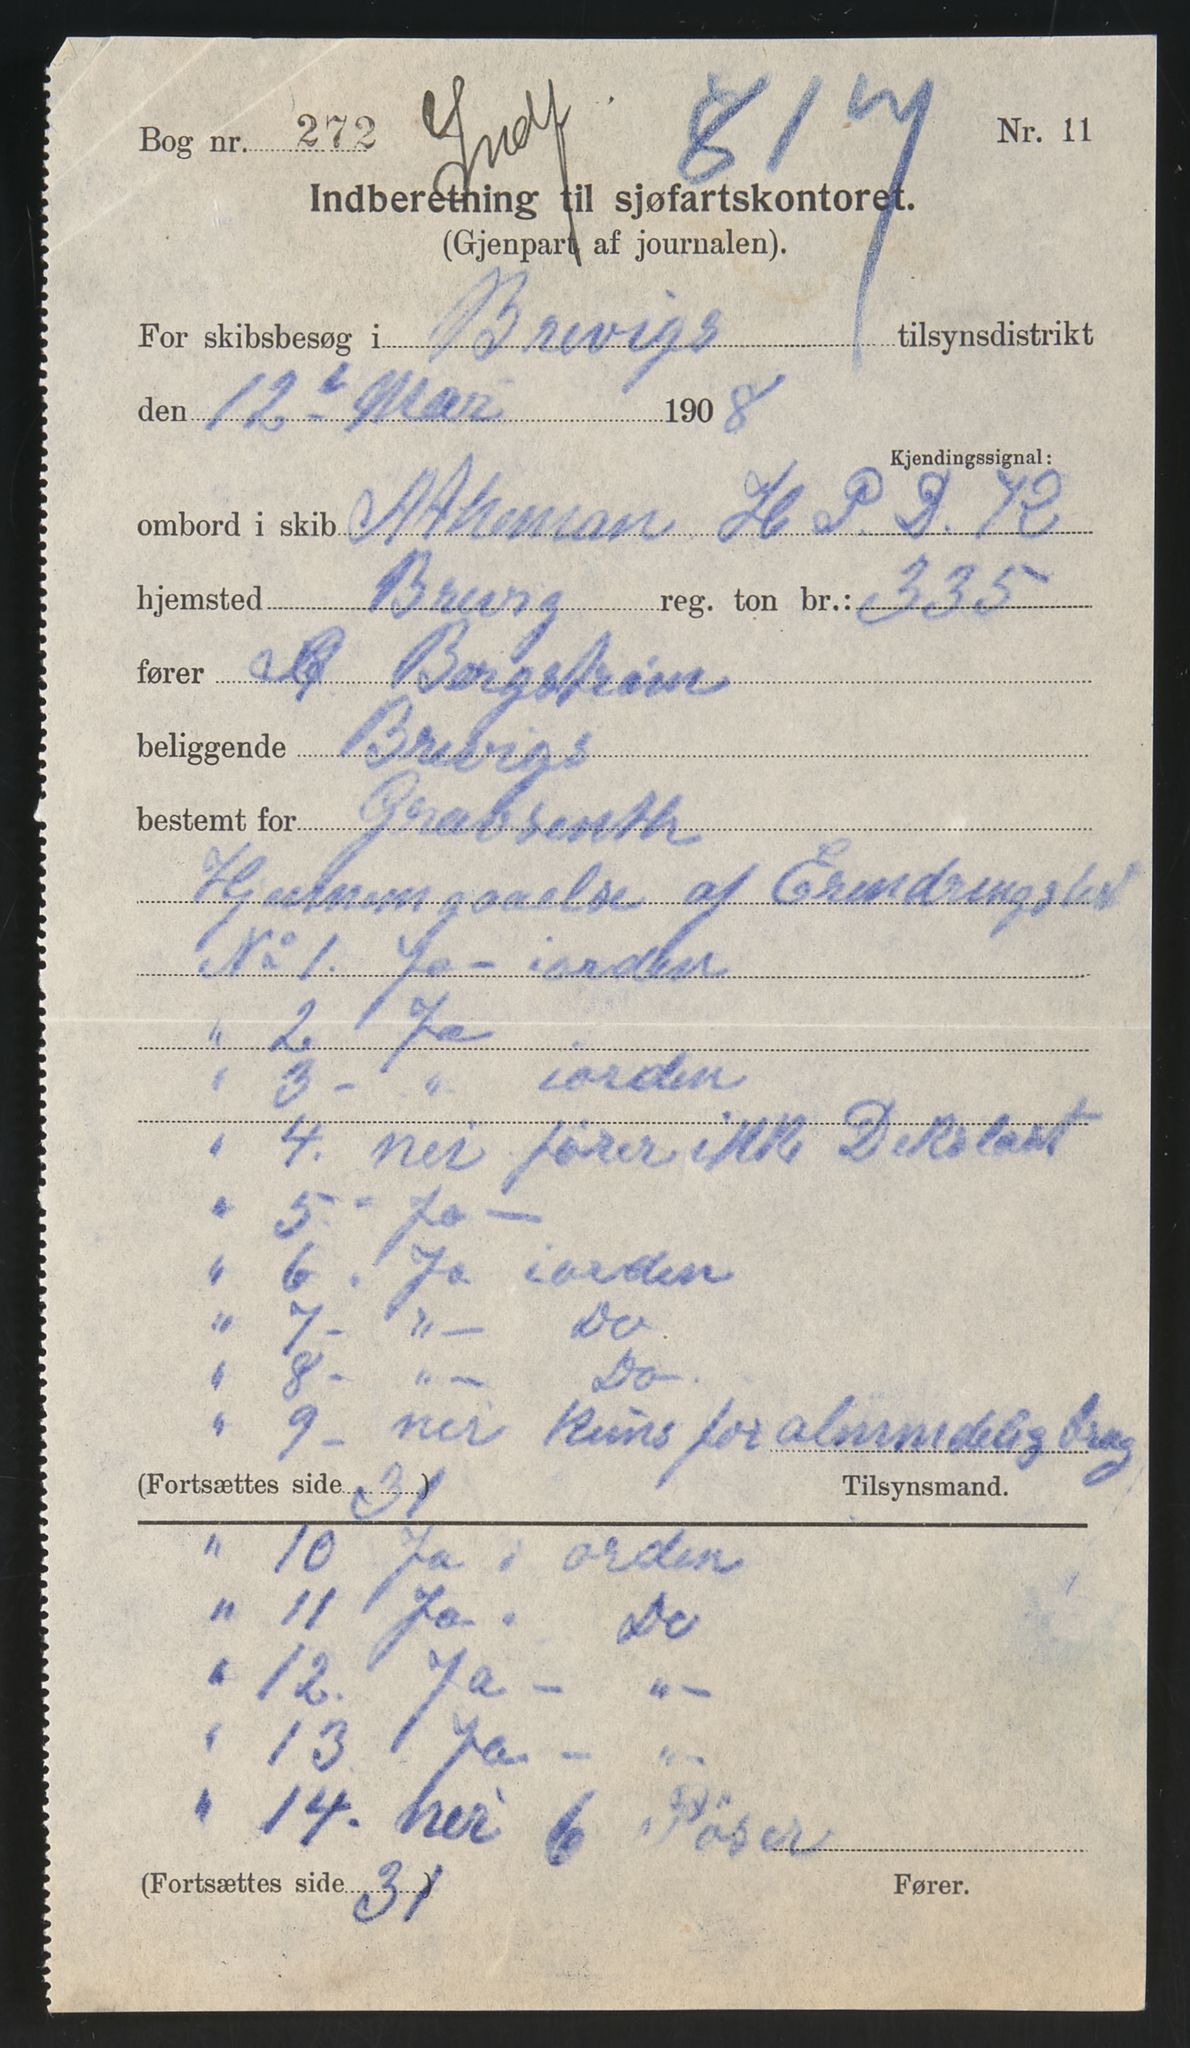 Bog nr. 272 Indf 817 Nr. 11
Indberetning til sjøfartskontoret.
(Gjenpart af journalen).
For skibsbesøg i Brevigs tilsynsdistrikt
den 12te Mar 1908
Kjendingssignal:
ombord i skib Atheman H P. D. K
hjemsted Brevig reg. ton br.: 335
fører Borgstrøm
beliggende Brevigs
bestemt for Grabsenth
Hjennemgaaelse af Erindringslist
No 1. Ja - iorden
" 2 Ja
" 3 - " iorden
" 4. nei fører ikke Dekslast
" 5 - Ja -
" 6. Ja iorden
" 7 - " - Do
" 8 - " - Do
" 9 - nei Kuns for almindelig brug
(Fortsættes side 31) Tilsynsmand.
" 10 Ja i orden
" 11 Ja. Do
" 12. Ja - " -
" 13 Ja - " -
" 14. nei 6 Pöser
(Fortsættes side 31) Fører.